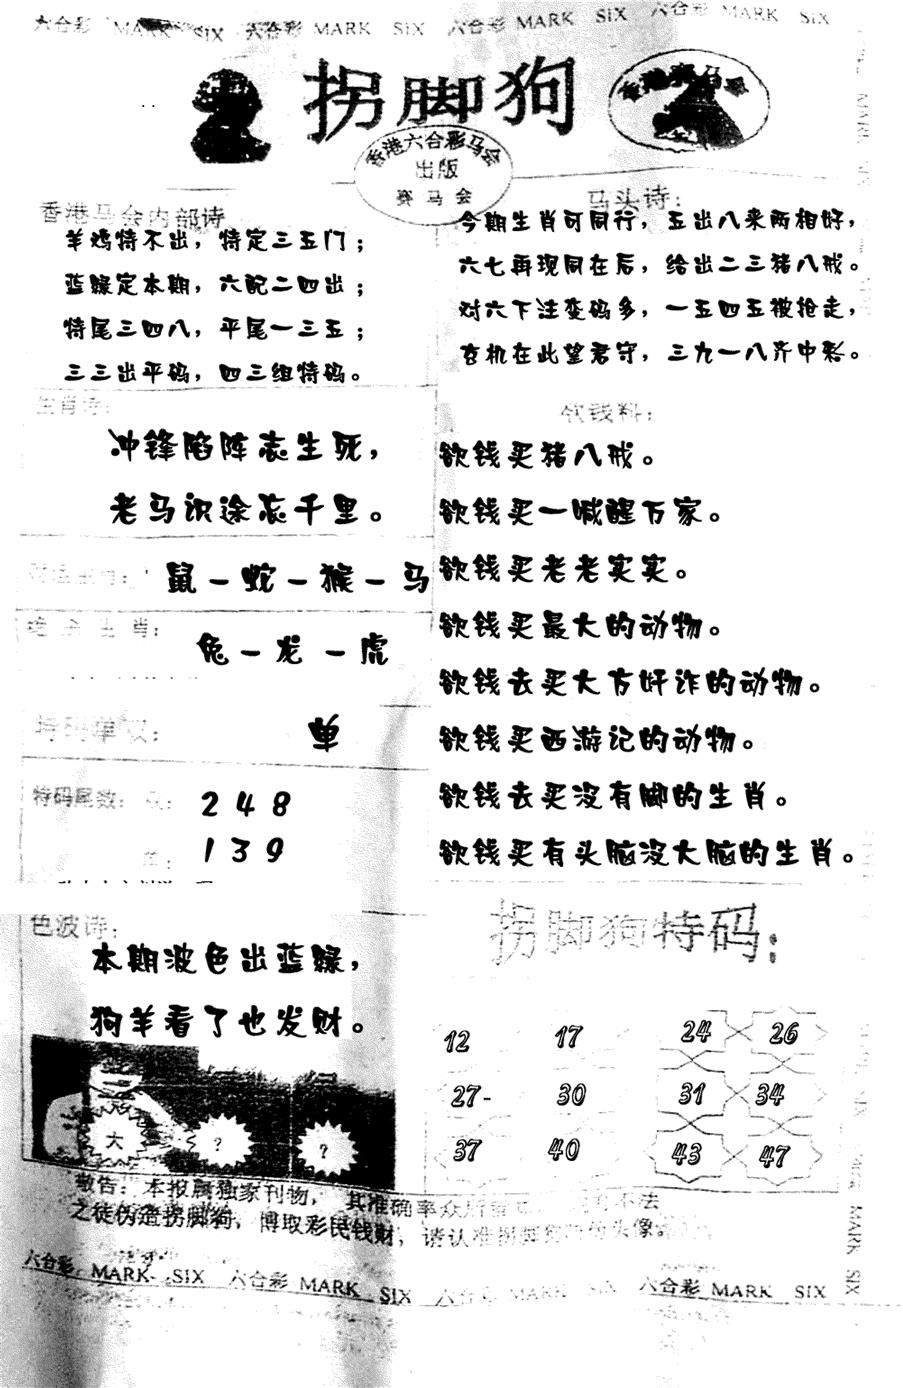 六合彩 MARK SIX 六合彩 MARK SIX 六合彩 MARK SIX 六合彩 MARK SIX
拐脚狗
香港赛马会
香港六合彩马会
出版
赛马会
香港马会内部诗
羊鸡特不出，特定三五门；
蓝绿定本期，六配二四出；
特尾三四八，平尾一三五；
三三出平码，四三组特码。
马头诗：
今期生肖可同行，五出八来两相好，
六七再现同在后，给出二三猪八戒。
对六下注变码多，一五四五被抢走，
玄机在此望君守，三九一八齐中彩。
生肖诗：
冲锋陷阵忘生死，
老马识途忘千里。
鼠－蛇－猴－马
生肖：
兔－龙－虎
特码单双：
单
特码尾数：
2 4 8
1 3 9
欲钱料：
欲钱买猪八戒。
欲钱买一喊醒万家。
欲钱买老老实实。
欲钱买最大的动物。
欲钱去买大方奸诈的动物。
欲钱买西游记的动物。
欲钱去买没有脚的生肖。
欲钱买有头脑没大脑的生肖。
色波诗：
本期波色出蓝绿，
狗羊看了也发财。
大 ? ?
拐脚狗特码：
12 17 24 26
27- 30 31 34
37 40 43 47
敬告：本报属独家刊物，其准确率众所 不法
之徒伪造拐脚狗，博取彩民钱财，请认准拐脚狗 头像。
六合彩 MARK SIX 六合彩 MARK SIX 六合彩 MARK SIX 六合彩 MARK SIX
MARK SIX